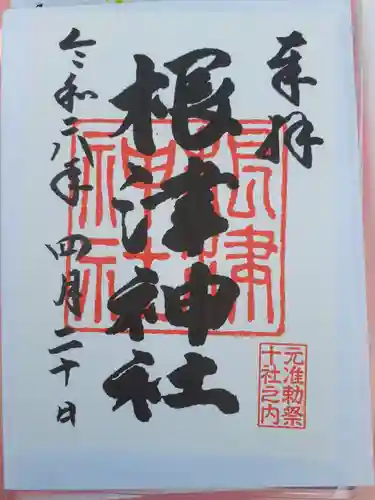 奉拝
根津神社
根津神社
元准勅祭
十社之内
令和六年四月二十日